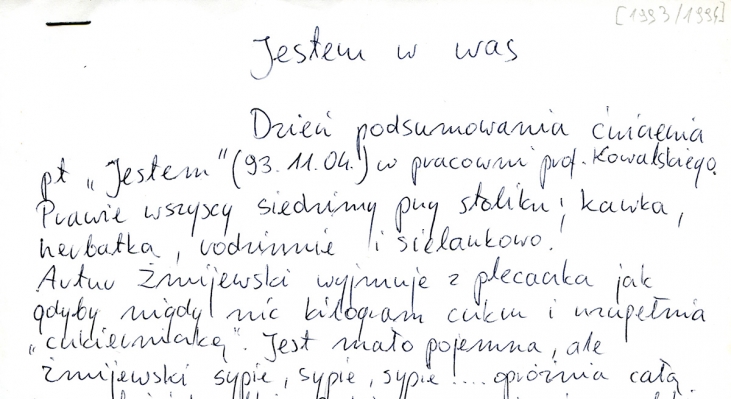 [1993/1994]
Jestem w was
Dzień podsumowania ćwiczenia
pt „Jestem” (93.11.04.) w pracowni prof. Kowalskiego.
Prawie wszyscy siedzimy przy stoliku; kawka,
herbatka, rodzinnie i sielankowo.
Artur Żmijewski wyjmuje z plecaczka jak
gdyby nigdy nic kilogram cukru i uzupełnia
„cukierniczkę”. Jest mało pojemna, ale
żmijewski sypie, sypie, sypie.... opróżnia całą